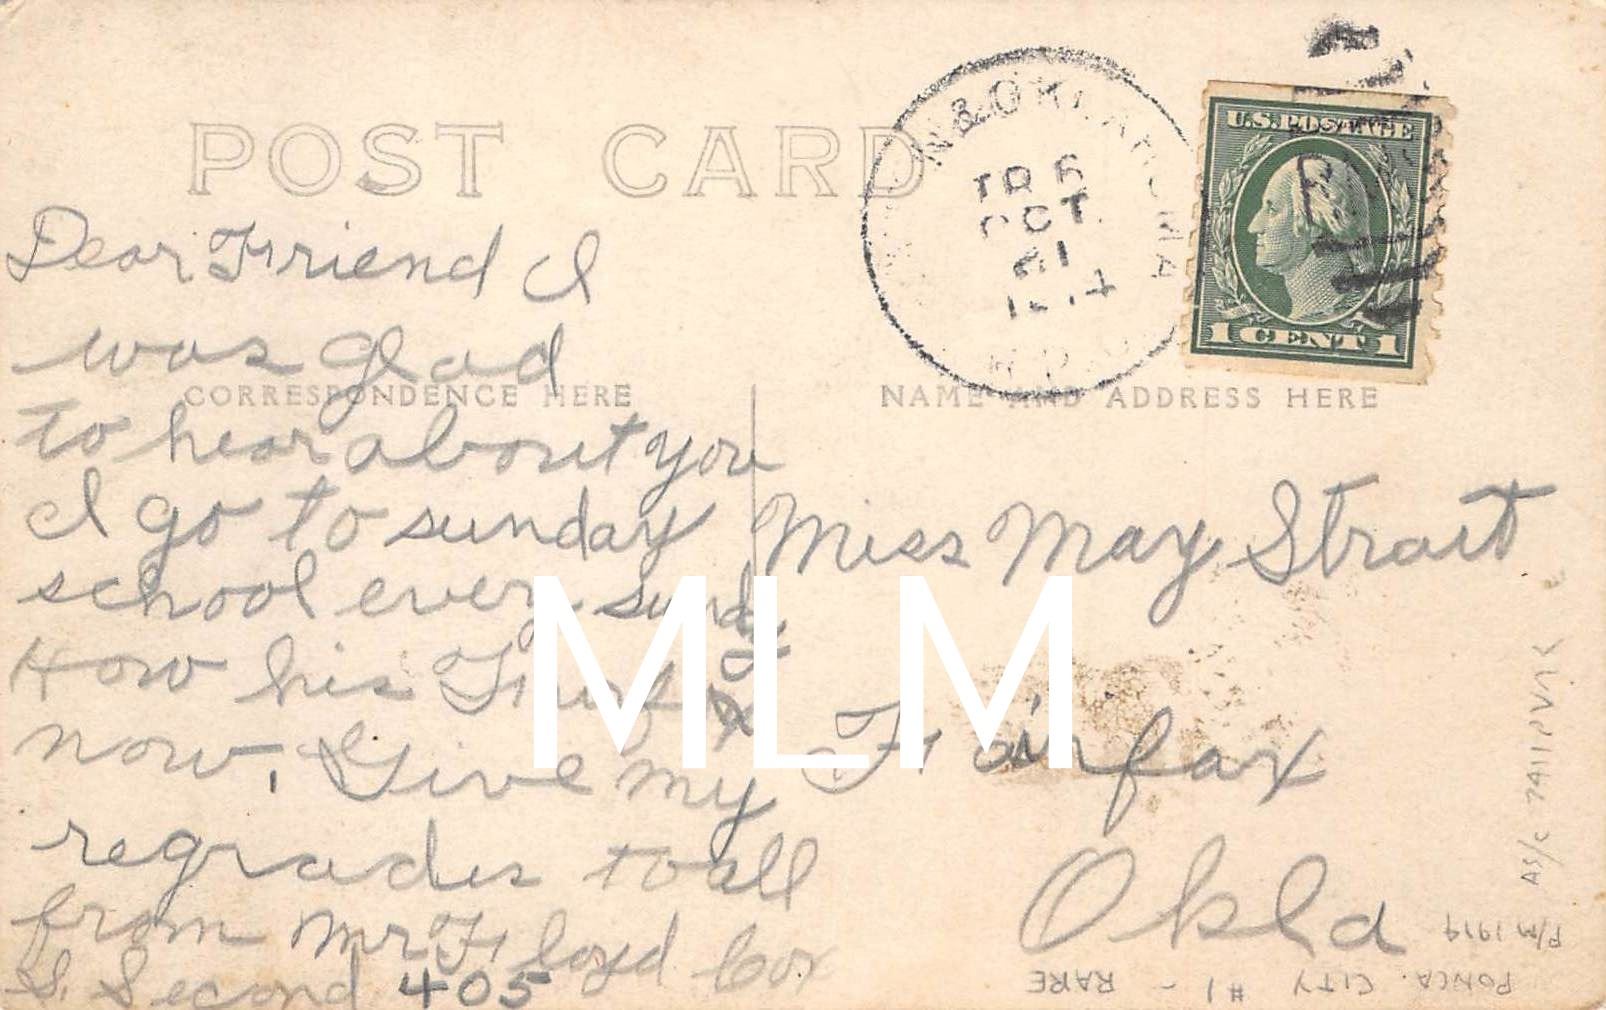 POST CARD
N & OKLAHOMA
TR 6
OCT
21
R.P.O.
U.S. POSTAGE
1 CENT 1
CORRESPONDENCE HERE
NAME AND ADDRESS HERE
Dear Friend I
was glad
to hear about you
I go to sunday
school every sunday
How his
now. Give my
regrades to all
from Mr Floyd Cox
S. Second 405
Miss May Strait
Fairfax
Okla
MLM
PONCA. CITY #1 - RARE
P/M 1914